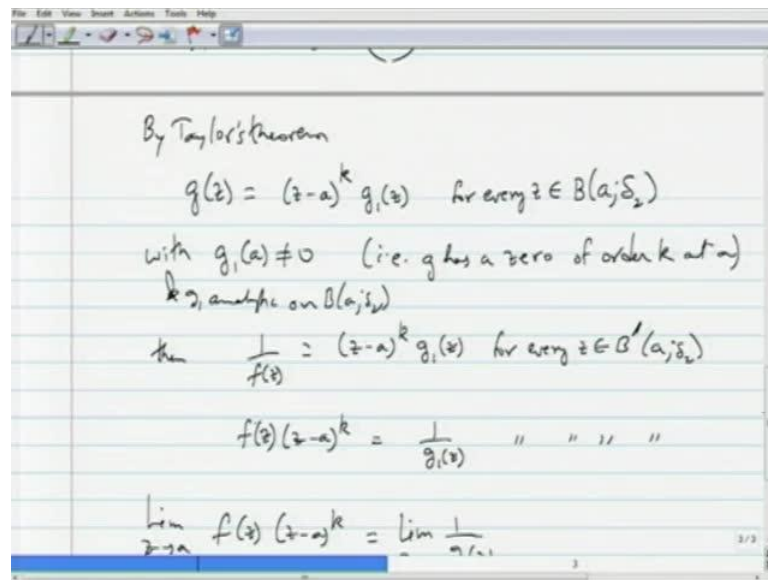 File Edit View Insert Actions Tools Help
By Taylor's theorem
g(z) = (z-a)^k g₁(z) for every z ∈ B(a;δ₂)
with g₁(a) ≠ 0 (i.e. g has a zero of order k at a)
& g₁ analytic on B(a;δ₂)
then 1/f(z) = (z-a)^k g₁(z) for every z ∈ B'(a;δ₂)
f(z)(z-a)^k = 1/g₁(z) " " " "
lim z→a f(z) (z-a)^k = lim 1/g(z)
3/3
3